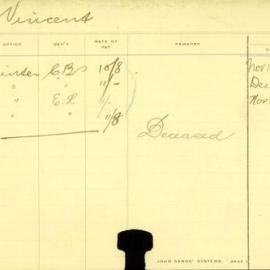 Vincent
OFFICE DEP'T RATE OF PAY REMARKS
C.B. 10/8 Nov
" " 11/- Dec
" E.L 11/- Nov
" " 11/8
Deceased
JOHN SANDS' SYSTEMS.